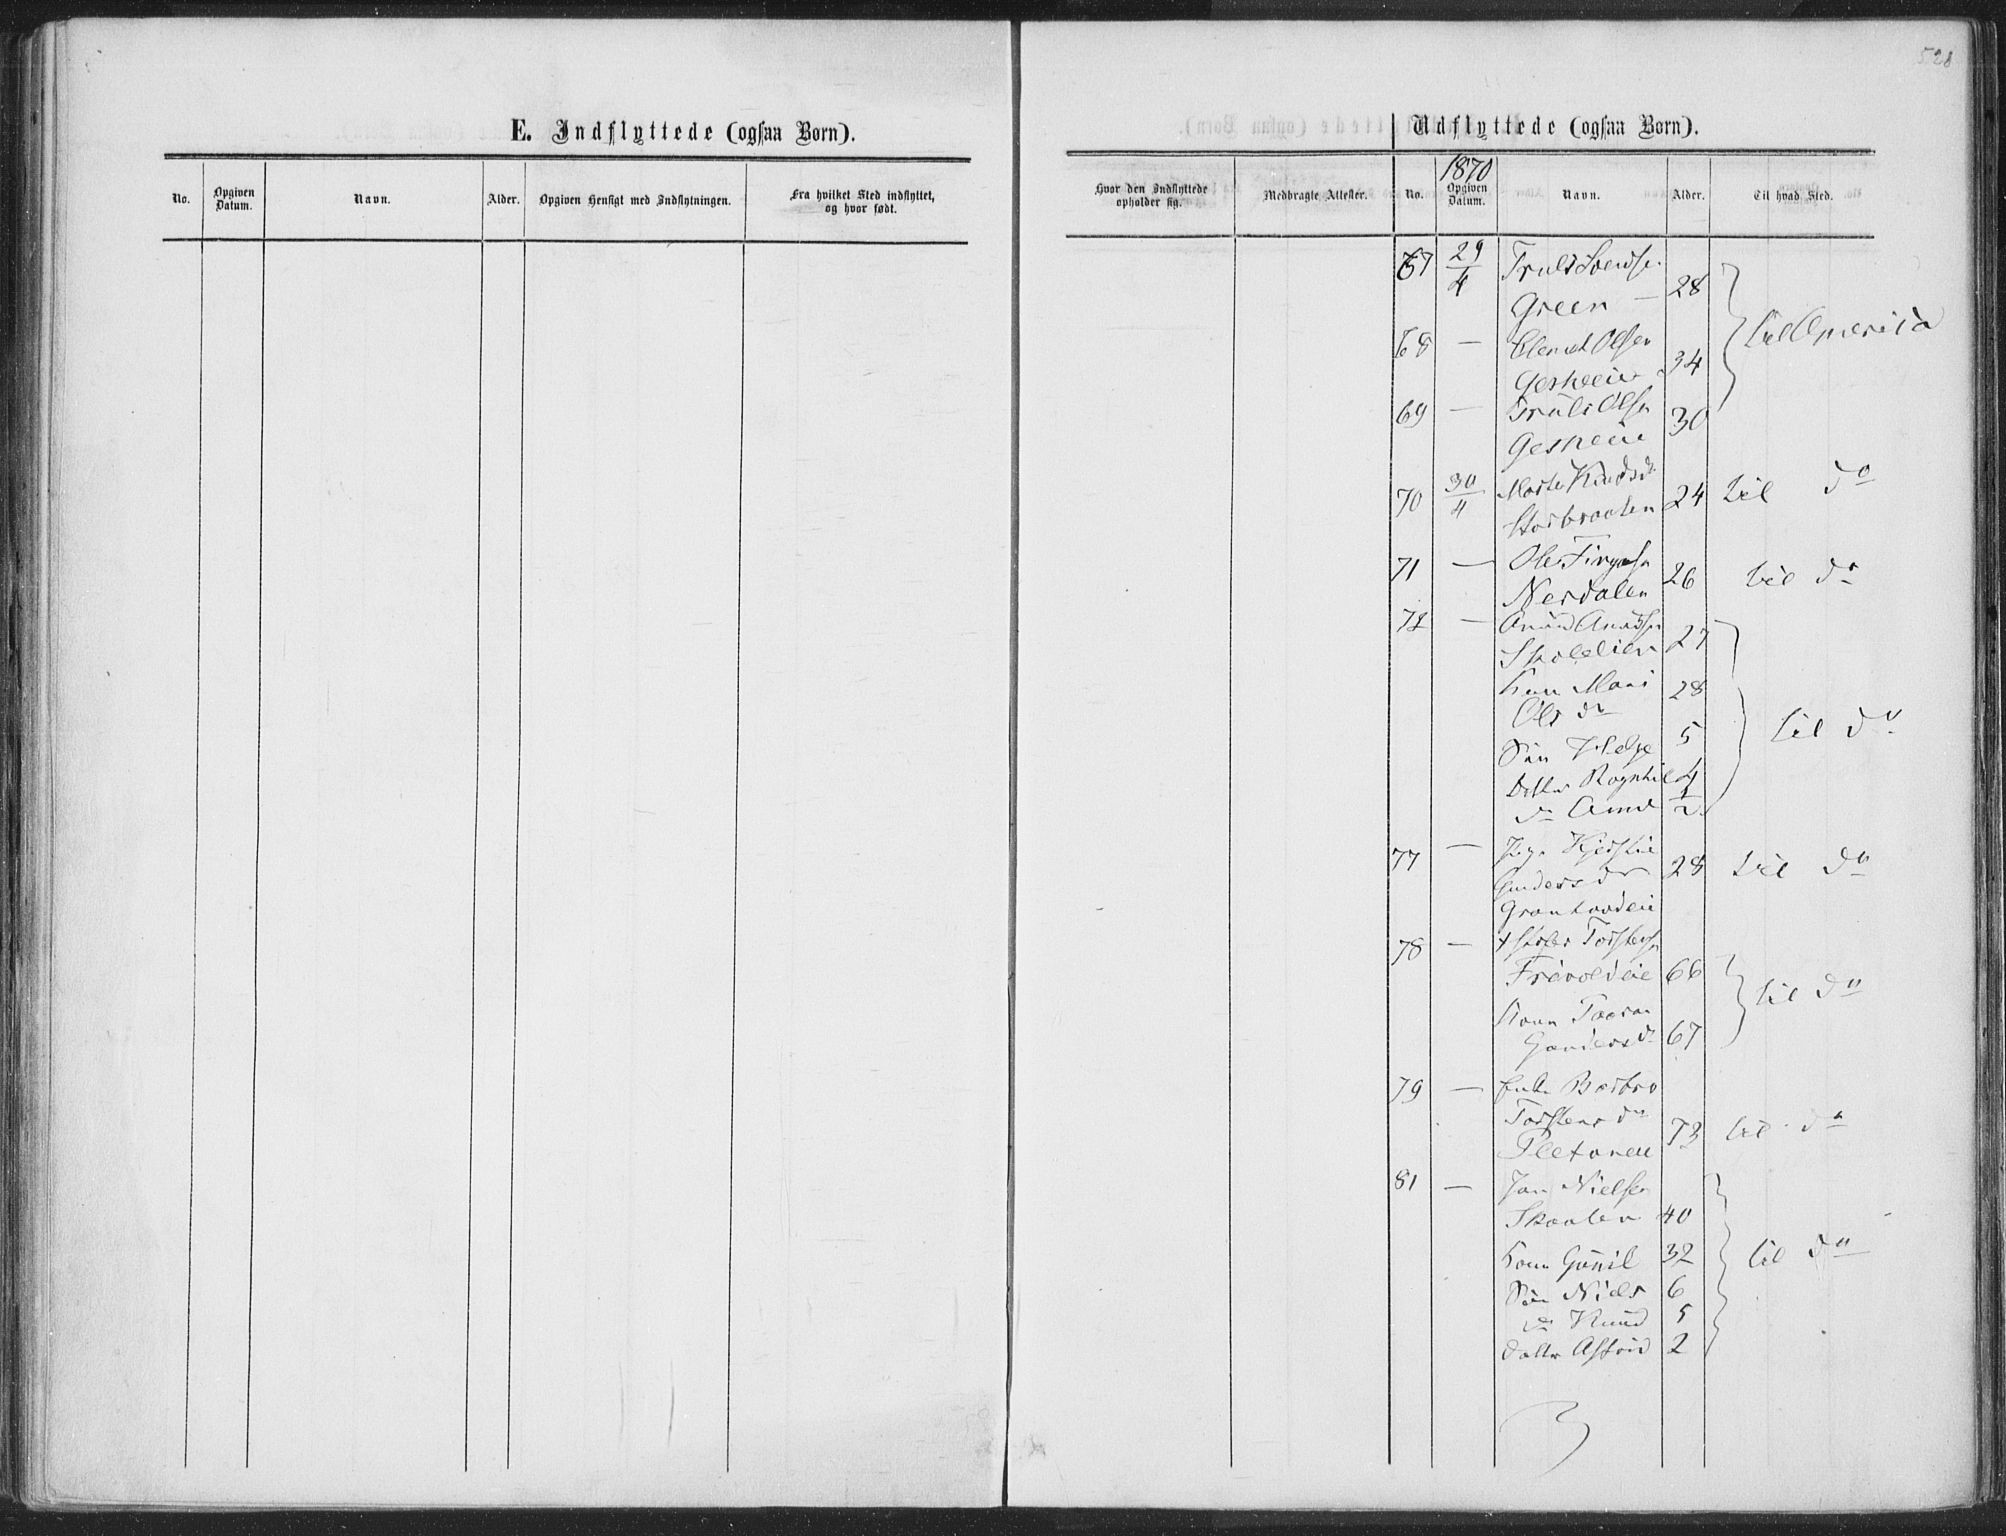 528
E. Indflyttede (ogsaa Børn).
Udflyttede (ogsaa Børn).
No.
Opgiven Datum.
Navn.
Alder.
Opgiven Hensigt med Indflytningen.
Fra hvilket Sted indflyttet, og hvor født.
Hvor den Indflyttede opholder sig.
Medbragte Attester.
No.
1870
Opgiven Datum.
Navn.
Alder.
Til hvad Sted.
67 29/4 Truls Svendsen
Green — 28
til Amerika
68 — Olsen
34
69 — Truls Olsen
30
70 30/4 Knudsdr
Storbraaten 24 til do
71 — Ole
Nerdalen 26 til do
72 — Amund Amundsen
27
Kone Mari 28
Ols dr
til do
Søn Helge 5
Datter Ragnhil 4
do 1/2
77 — Pige Kjersti
Gunders dr 28 til do
78 — Torstensen
66
til do
Kone
Gunders dr 67
79 — Enke Barbro
Torstens dr
73 til do
81 — Jon Nielsen
40
Kone Gunil 32 til do
Søn Niels 6
do Knud 5
Datter Astrid 2